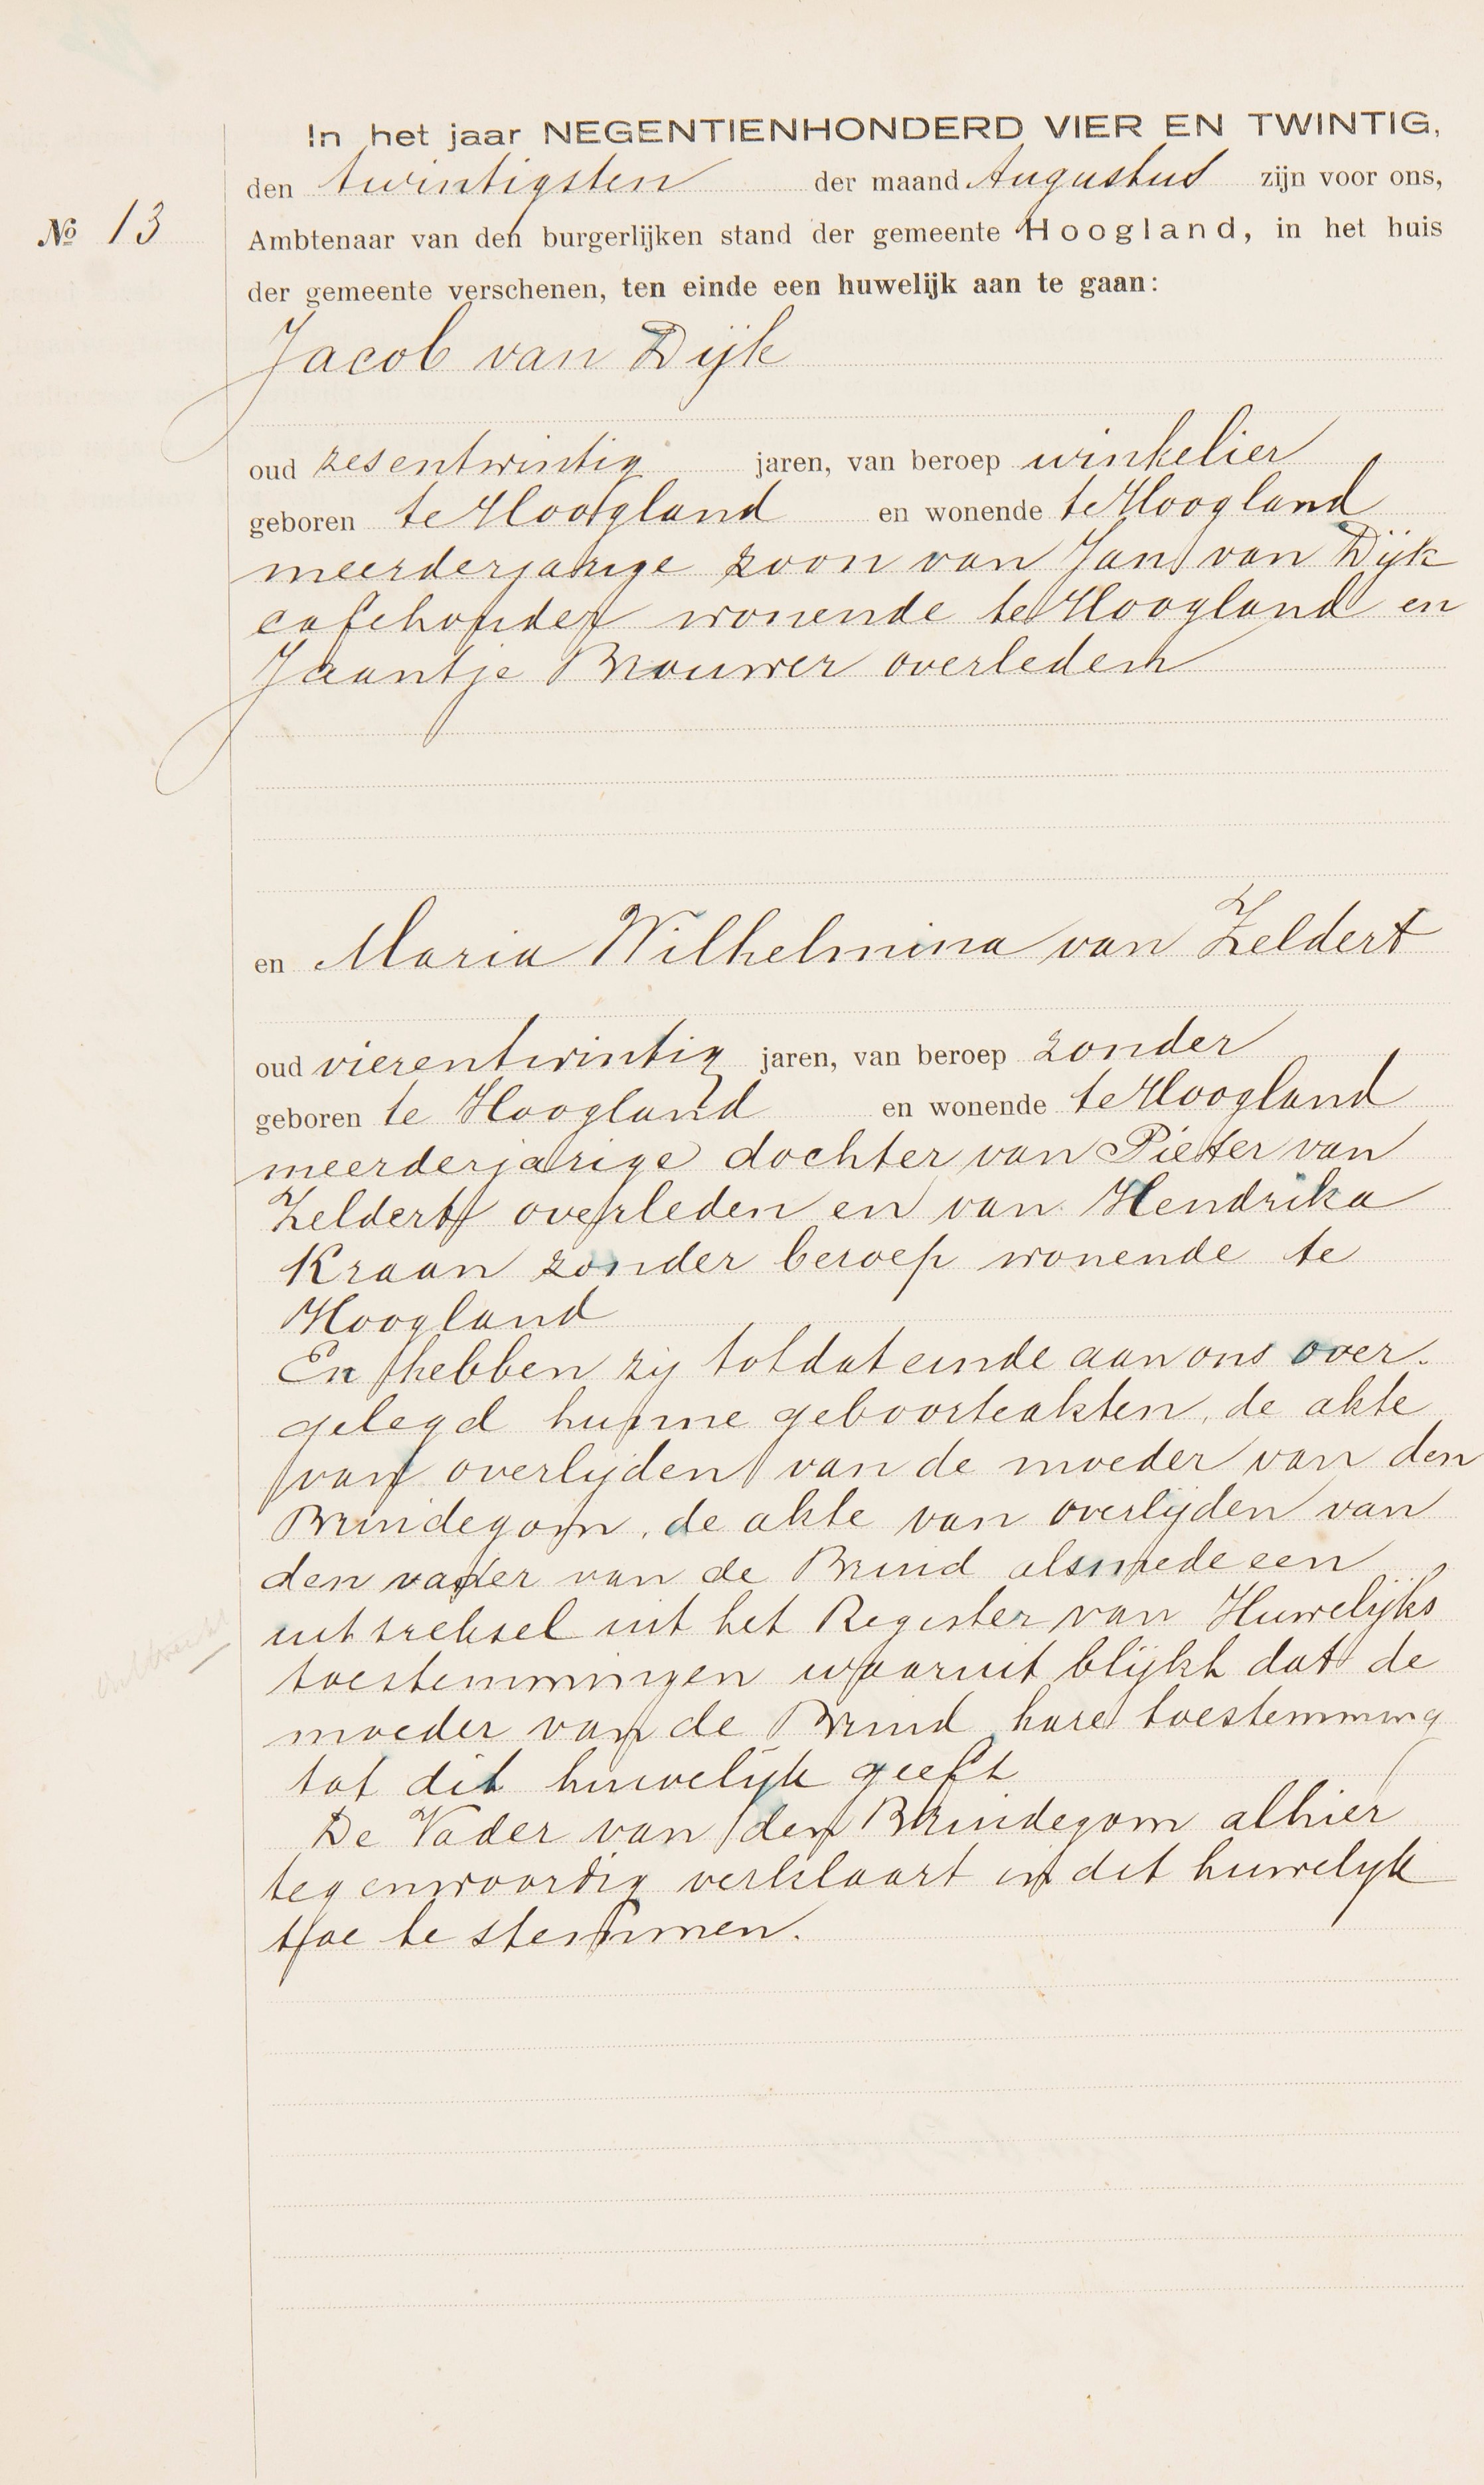 In het jaar NEGENTIENHONDERD VIER EN TWINTIG,
den twintigsten der maand Augustus zijn voor ons,
No 13
Ambtenaar van den burgerlijken stand der gemeente Hoogland, in het huis
der gemeente verschenen, ten einde een huwelijk aan te gaan:
Jacob van Dijk
oud zesentwintig jaren, van beroep winkelier
geboren te Hoogland en wonende te Hoogland
meerderjarige zoon van Jan van Dijk
cafehouder wonende te Hoogland en
Jaantje Brouwer overleden
en Maria Wilhelmina van Zeldert
oud vierentwintig jaren, van beroep zonder
geboren te Hoogland en wonende te Hoogland
meerderjarige dochter van Pieter van
Zeldert overleden en van Hendrika
Kraan zonder beroep wonende te
Hoogland
En hebben zij tot dat einde aan ons over-
gelegd hunne geboorteakten, de akte
van overlijden van de moeder van den
Bruidegom, de akte van overlijden van
den vader van de Bruid alsmede een
uittreksel uit het Register van Huwelijks
toestemmingen waaruit blijkt dat de
moeder van de Bruid hare toestemming
tot dit huwelijk geeft
De Vader van den Bruidegom alhier
tegenwoordig verklaart in dit huwelijk
toe te stemmen.